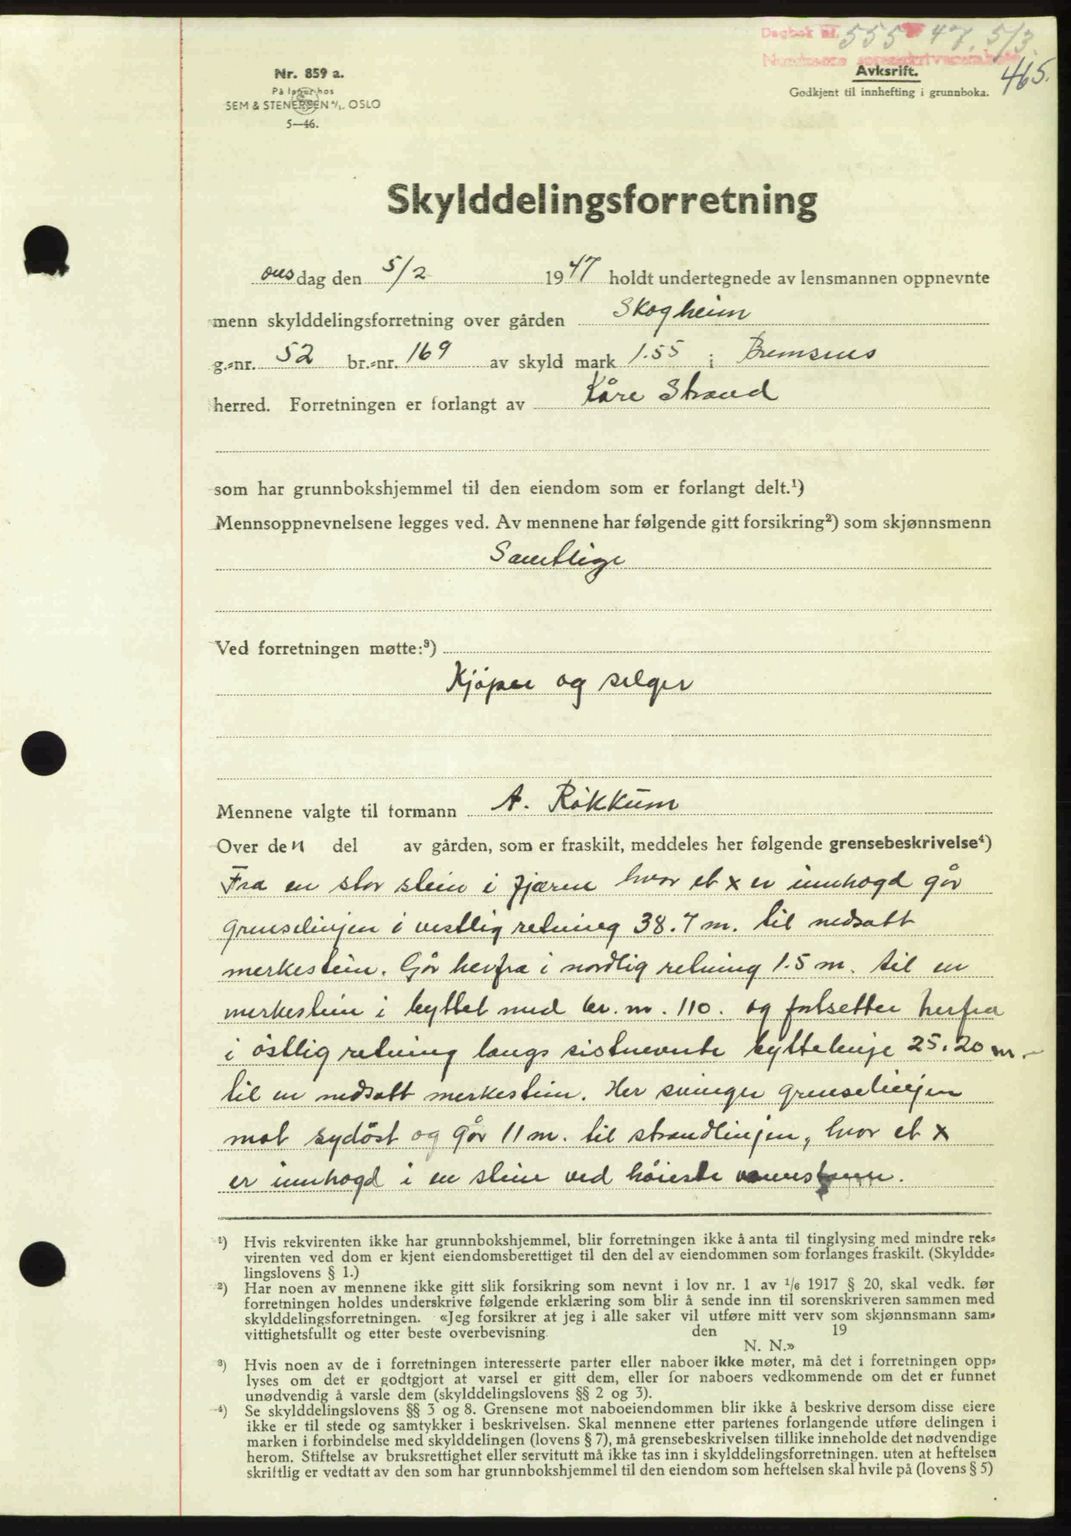 Dagbok nr. 555 47. 5/3.
Nordmøre sorenskriverembete
465.
Nr. 859 a.
På lager hos
SEM & STENERSEN A/S. OSLO
5—46.
Avksrift.
Godkjent til innhefting i grunnboka.
Skylddelingsforretning
onsdag den 5/2 1947 holdt undertegnede av lensmannen oppnevnte
menn skylddelingsforretning over gården Skogheim
g.-nr. 52 br.-nr. 169 av skyld mark 1.55 i Bremsnes
herred. Forretningen er forlangt av Kåre Strand
som har grunnbokshjemmel til den eiendom som er forlangt delt.¹)
Mennsoppnevnelsene legges ved. Av mennene har følgende gitt forsikring²) som skjønnsmenn
Samtlige
Ved forretningen møtte:³)
Kjøper og selger
Mennene valgte til formann A. Røkkum
Over den del av gården, som er fraskilt, meddeles her følgende grensebeskrivelse⁴)
Fra en stor stein i fjæren hvor et x er innhogd går
grenselinjen i vestlig retning 38.7 m. til nedsatt
merkestein. Går herfra i nordlig retning 1.5 m. til en
merkestein i byttet med br. nr. 110. og fortsetter herfra
i østlig retning langs sistnevnte byttelinje 25.20 m.
til en nedsatt merkestein. Her svinger grenselinjen
mot sydøst og går 11 m. til strandlinjen, hvor et x
er innhogd i en stein ved høieste
¹) Hvis rekvirenten ikke har grunnbokshjemmel, blir forretningen ikke å anta til tinglysing med mindre rek-
virenten ved dom er kjent eiendomsberettiget til den del av eiendommen som forlanges fraskilt. (Skyldde-
lingslovens § 1.)
²) Har noen av mennene ikke gitt slik forsikring som nevnt i lov nr. 1 av 1/6 1917 § 20, skal vedk. før
forretningen holdes underskrive følgende erklæring som blir å sende inn til sorenskriveren sammen med
skylddelingsforretningen. «Jeg forsikrer at jeg i alle saker vil utføre mitt verv som skjønnsmann sam-
vittighetsfullt og etter beste overbevisning den 19
N. N.»
³) Hvis noen av de i forretningen interesserte parter eller naboer ikke møter, må det i forretningen opp-
lyses om det er godtgjort at varsel er gitt dem, eller for naboers vedkommende om det er funnet
unødvendig å varsle dem (skylddelingslovens §§ 2 og 3).
⁴) Se skylddelingslovens §§ 3 og 8. Grensene mot naboeiendommen blir ikke å beskrive dersom disse eiere
ikke er til stede og samtykker i beskrivelsen. Skal mennene etter partenes forlangende utføre delingen i
marken i forbindelse med skylddelingen (lovens § 7), må grensebeskrivelsen tillike inneholde det nødvendige
herom. Stiftelse av bruksrettighet eller servitutt må ikke tas inn i skylddelingsforretningen. uten at heftelsen
skriftlig er vedtatt av den som har grunnbokshjemmel til den eiendom som heftelsen skal hvile på (lovens § 5)